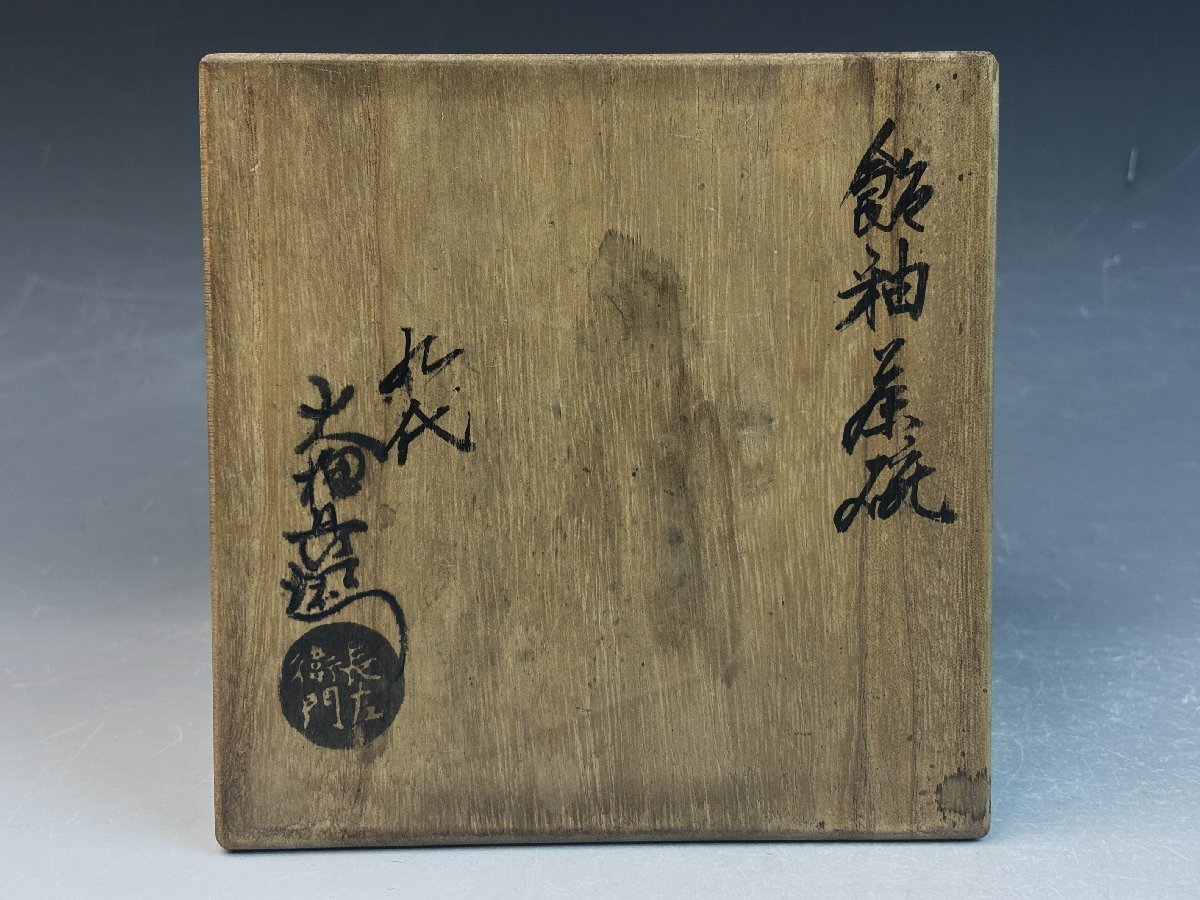 飴釉茶碗
九代
大樋長左衛門
長左衛門